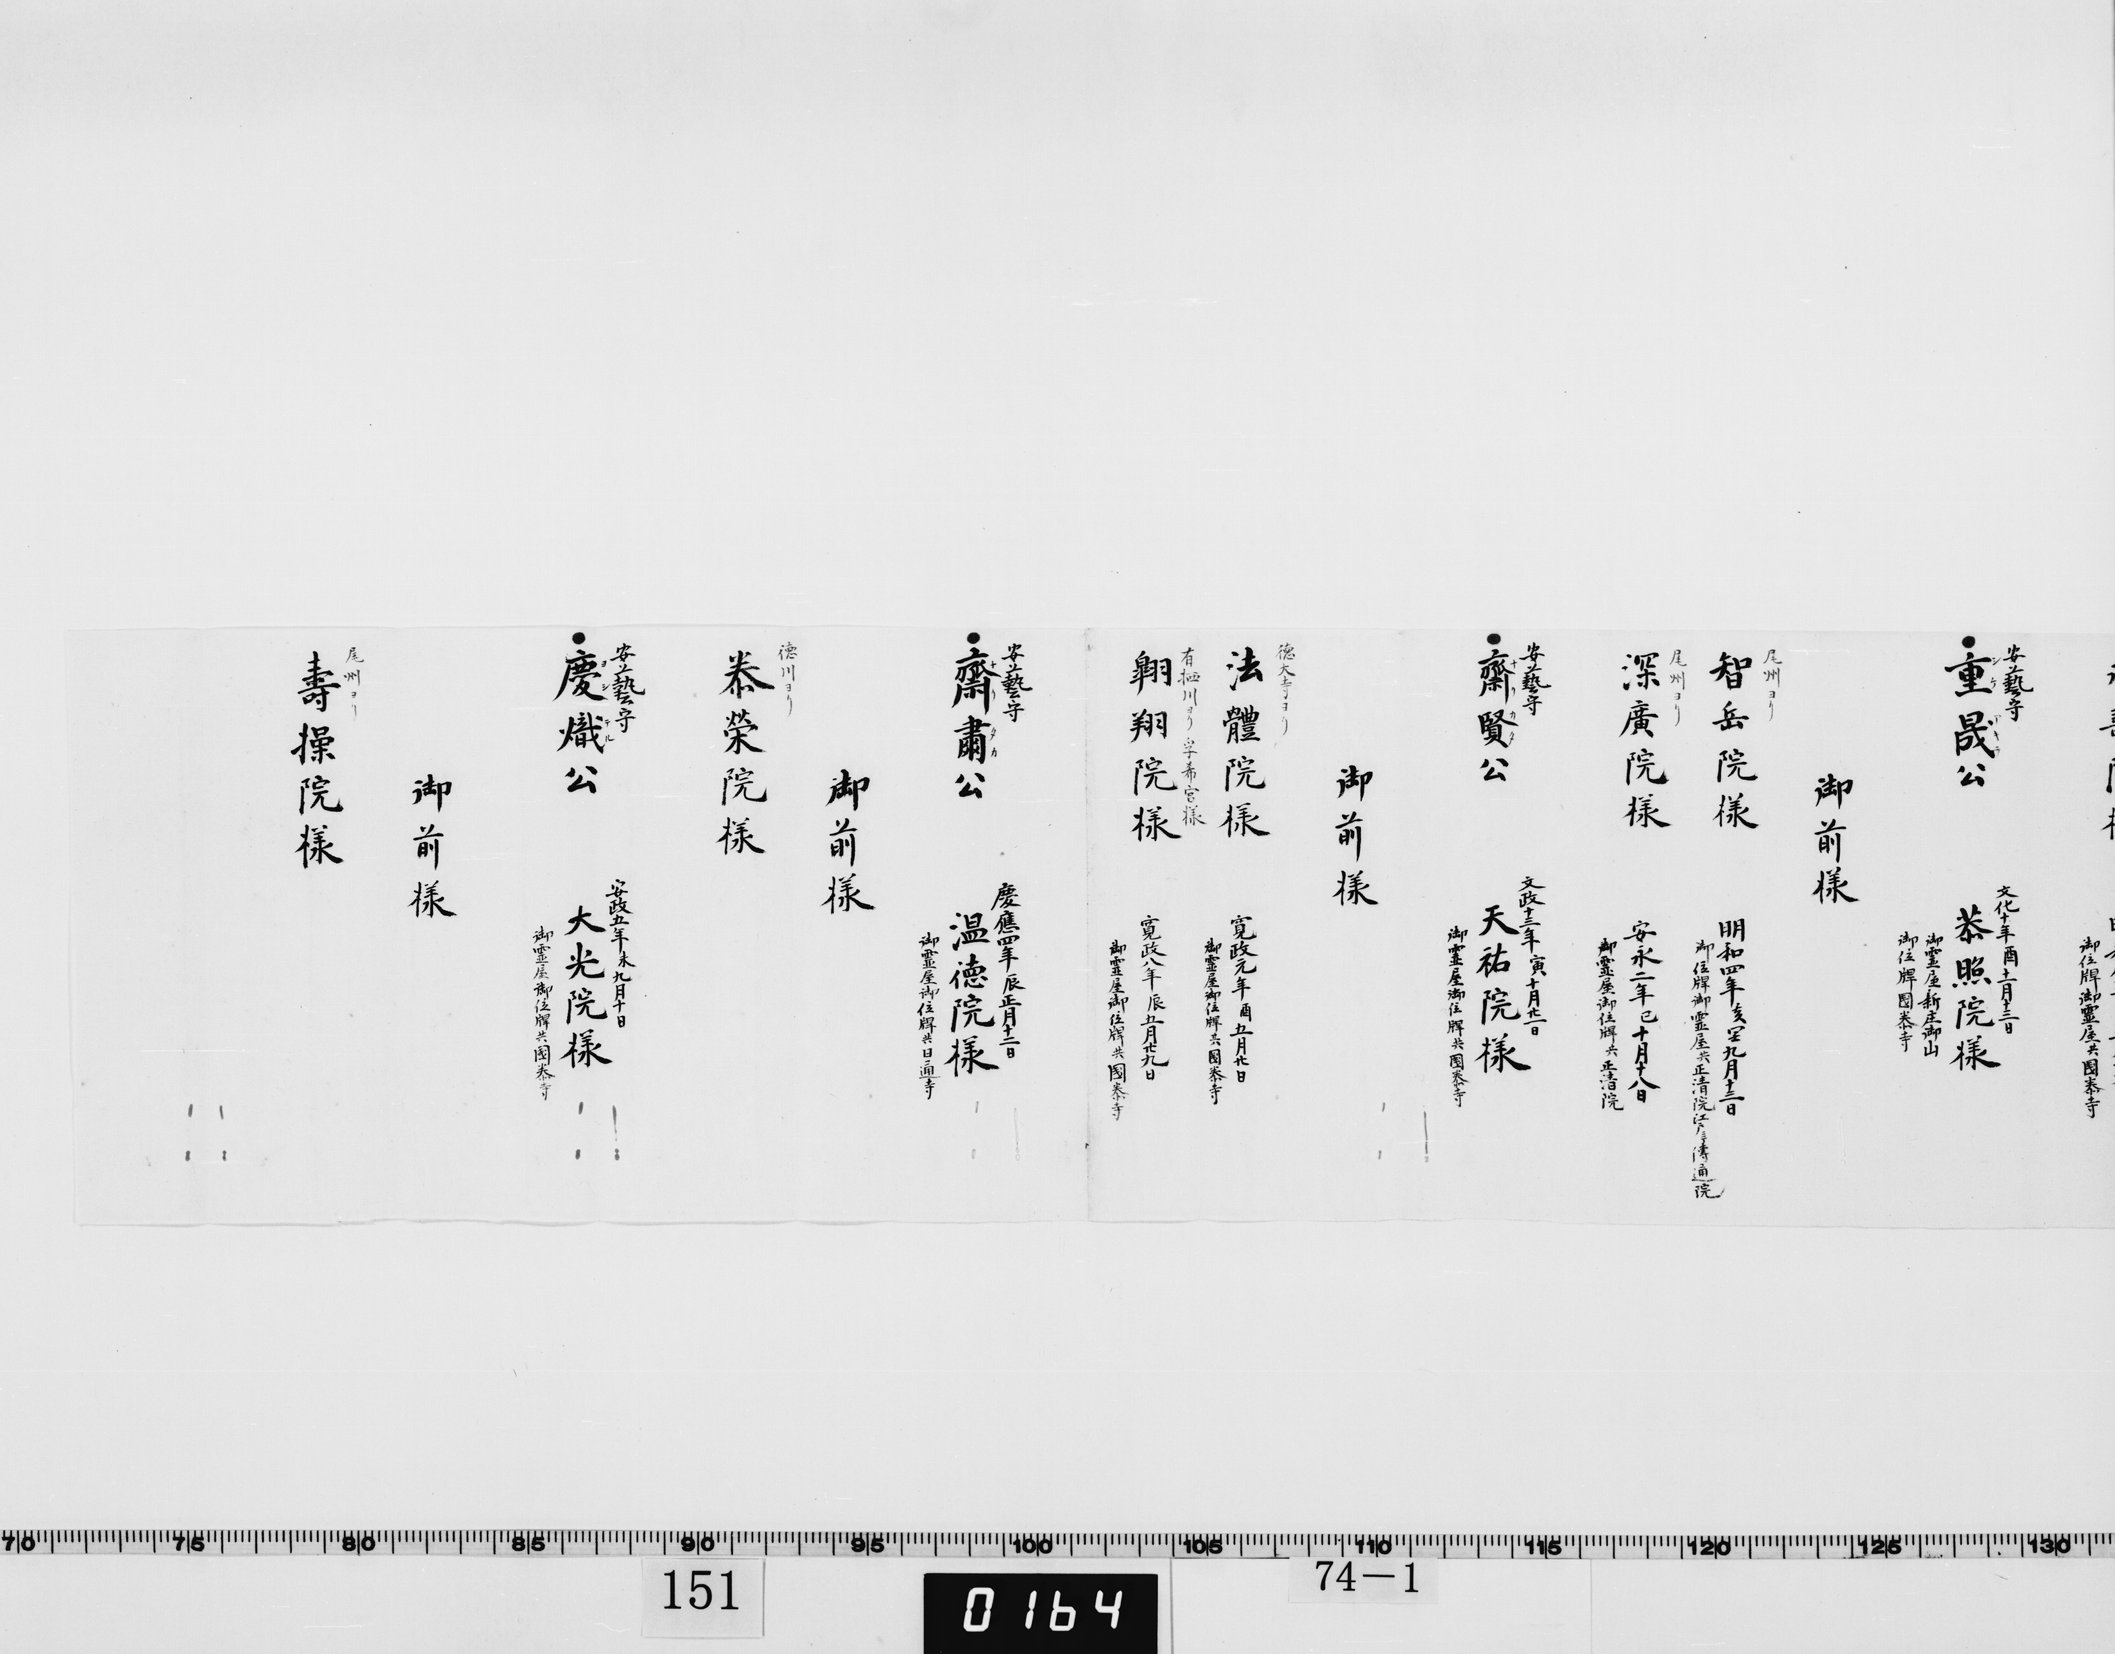 御位牌御霊屋共國泰寺
安藝守
重晟公
シゲ アキラ
文化十年酉十一月十三日
恭照院様
御霊屋新庄御山
御位牌國泰寺
御前様
尾州ヨリ
智岳院様
明和四年亥閏九月十三日
御位牌御霊屋共正清院江戸傳通院
尾州ヨリ
深廣院様
安永二年巳十月十八日
御霊屋御位牌共正清院
安藝守
齋賢公
ナリ カタ
文政十三年寅十月廿一日
天祐院様
御霊屋御位牌共國泰寺
御前様
徳大寺ヨリ
法體院様
寛政元年酉五月廿日
御霊屋御位牌共國泰寺
有栖川ヨリ孚希宮様
翺翔院様
寛政八年辰五月廿九日
御霊屋御位牌共國泰寺
安藝守
齋肅公
ナリ タカ
慶應四年辰正月十二日
温徳院様
御霊屋御位牌共日通寺
御前様
徳川ヨリ
泰榮院様
安藝守
慶熾公
ヨシ テル
安政五年未九月十日
大光院様
御霊屋御位牌共國泰寺
御前様
尾州ヨリ
壽操院様
70 75 80 85 90 95 100 105 110 115 120 125 130
151
0164
74-1